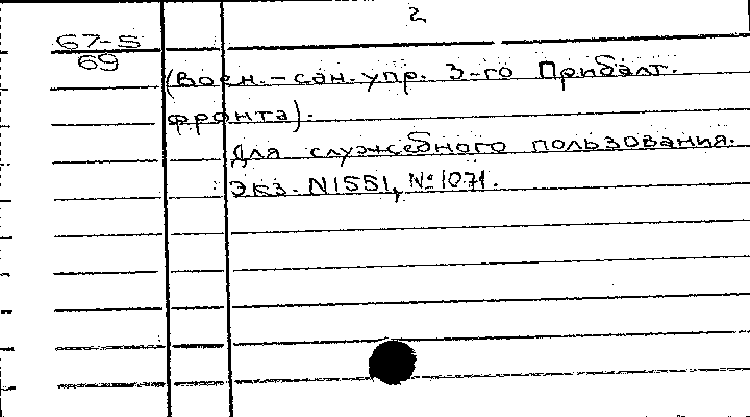 2
67-5
69
(Воен.-сан. упр. 3-го Прибалт.
фронта).
Для служебного пользования.
Экз. N1551, №1071.